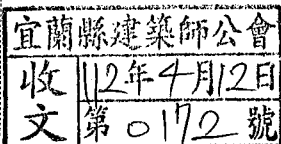 宜蘭縣建築師公會
收文
112年4月12日
第0172號